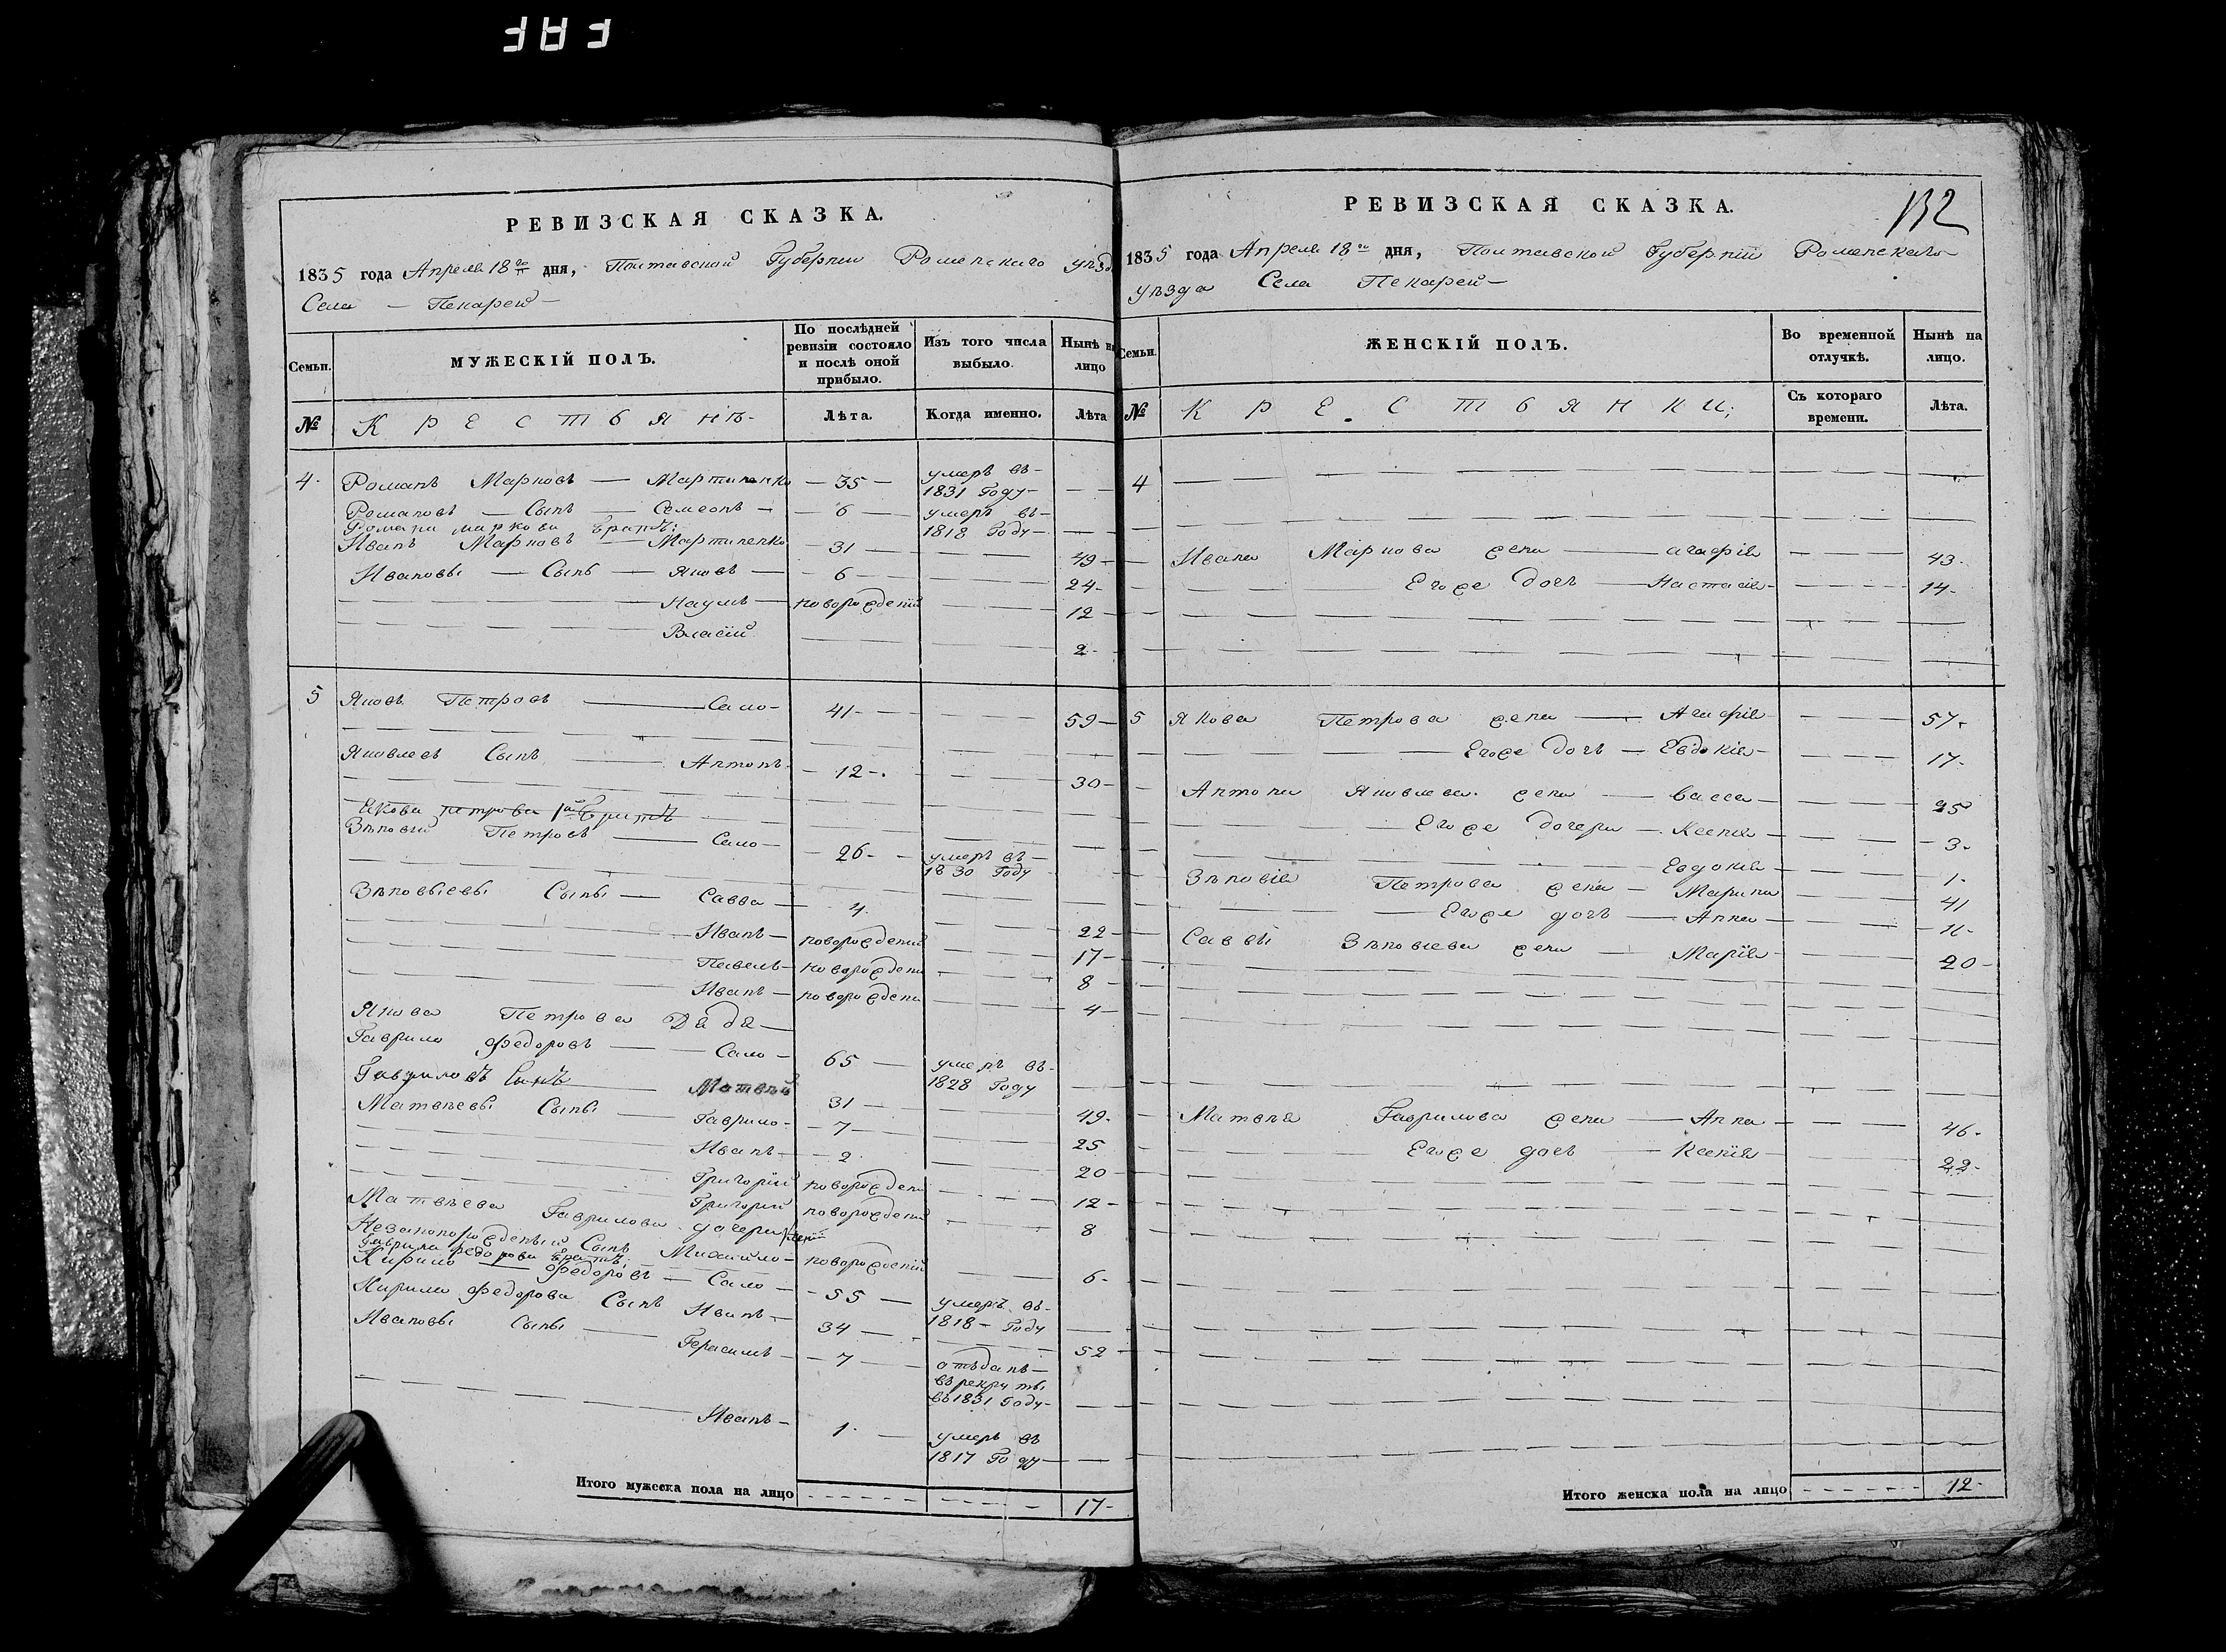 РЕВИЗСКАЯ СКАЗКА.
1835 года Апреля 18го дня, Полтавской Губернии Роменскаго уѣзд
Села — Пекарей —
Семьи.
МУЖЕСКІЙ ПОЛЪ.
По послѣдней ревизіи состояло и послѣ оной прибыло.
Изъ того числа выбыло.
Нынѣ на лицо
№
Крестьянъ
Лѣта.
Когда именно.
Лѣта
4. Романъ Марковъ — Мартиненко — 35 — умеръ въ 1831 Году —
Романовъ — Сынъ — Семеонъ — 6 — умеръ въ 1818 Году —
Романа Маркова братъ:
Иванъ Марковъ — Мартиненко — 31 — 49
Ивановы — Сыны — Яковъ — 6 — 24
Наумъ — новорожденій — 12
Власій — 2
5 Яковъ Петровъ — Сало — 41 — 59
Яковлевъ Сынъ — Антонъ — 12 — 30
Якова Петрова 1й братъ
Зѣновій Петровъ — Сало — 26 — умеръ въ 1830 Году
Зѣновыевы Сыны — Савва — 4 — 22
Иванъ — новорожденій — 17
Павелъ — новорождени — 8
Иванъ — новорождени — 4
Якова Петрова Дядя —
Гаврило Федоровъ — Сало — 65 — умеръ въ 1828 Году
Гавриловъ Сынъ — Матвѣй 31 — 49
Матвѣевы Сыны — Гаврило — 7 — 25
Иванъ — 2 — 20
Григорій новорожден — 12
Григорій новорожденій — 8
Матвѣева Гаврилова дочери
Незаконорожденый Сынъ Михайло — новорожденій — 6
Гаврила Федорова братъ:
Кирило Федоровъ — Сало — 55 — умеръ въ 1818 — Году
Кирила Федорова Сынъ Иванъ — 34 — 52
Ивановы Сыны — Герасимъ — 7 — отъданъ въ рекруты въ 1831 Году —
Иванъ — 1 — умеръ въ 1817 Году —
Итого мужеска пола на лицо 17
РЕВИЗСКАЯ СКАЗКА.
132
1835 года Апреля 18го дня, Полтавской Губерніи Роменскаго
уѣзда Села Пекарей —
Семьи.
ЖЕНСКІЙ ПОЛЪ.
Во временной отлучкѣ.
Нынѣ на лицо.
№
Крестьянки;
Съ котораго времени.
Лѣта.
4
Ивана Маркова жена — Агафія — 43
Егоже дочъ — Настасія — 14
5 Якова Петрова жена — Агафія — 57
Егоже дочъ — Евдокія — 17
Антона Яковлева жена — Васса — 25
Егоже дочери — Ксенія — 3
Евдокія — 1
Зѣновія Петрова жена — Марина 41
Егоже дочъ — Анна — 11
Саввы Зѣновіева жена — Марія — 20
Матвѣя Гаврилова жена — Анна — 46
Егоже дочъ — Ксенія — 22
Итого женска пола на лицо 12